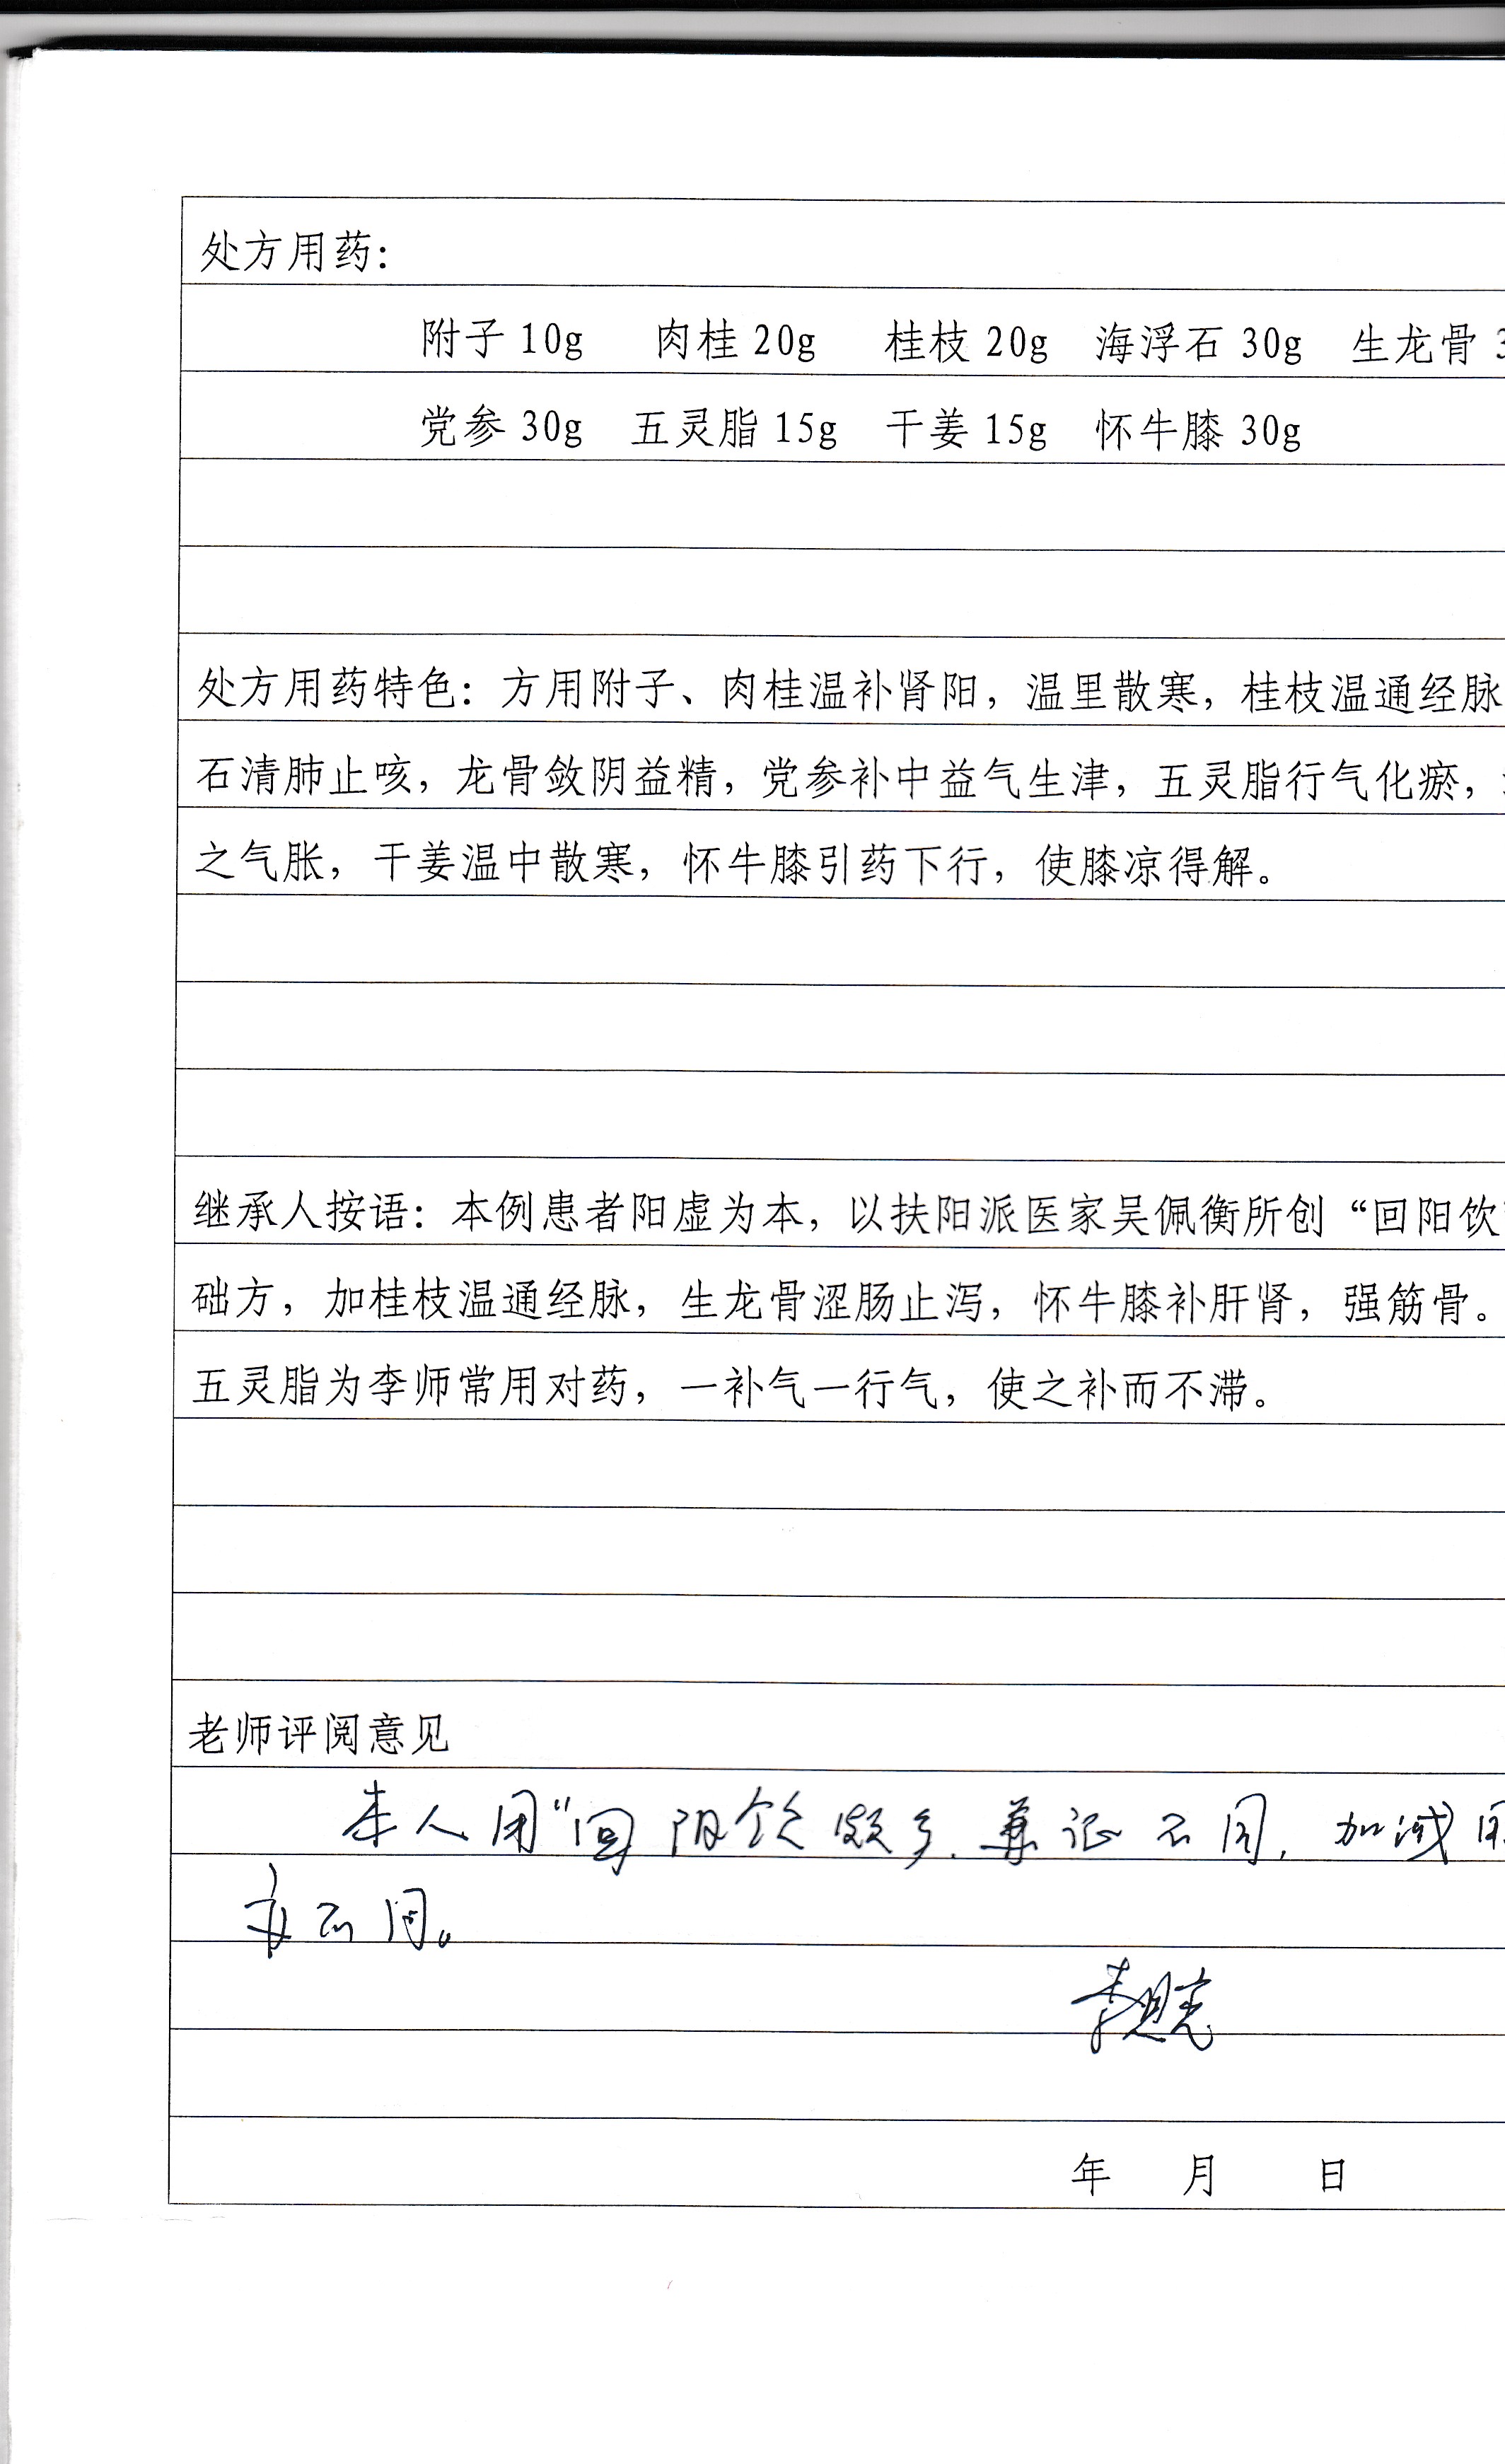 处方用药：
附子 10g 肉桂 20g 桂枝 20g 海浮石 30g 生龙骨 3
党参 30g 五灵脂 15g 干姜 15g 怀牛膝 30g
处方用药特色：方用附子、肉桂温补肾阳，温里散寒，桂枝温通经脉
石清肺止咳，龙骨敛阴益精，党参补中益气生津，五灵脂行气化瘀，
之气胀，干姜温中散寒，怀牛膝引药下行，使膝凉得解。
继承人按语：本例患者阳虚为本，以扶阳派医家吴佩衡所创“回阳饮
础方，加桂枝温通经脉，生龙骨涩肠止泻，怀牛膝补肝肾，强筋骨。
五灵脂为李师常用对药，一补气一行气，使之补而不滞。
老师评阅意见
本人用“回阳饮颇多.兼证不同,加减用
亦不同。
年 月 日